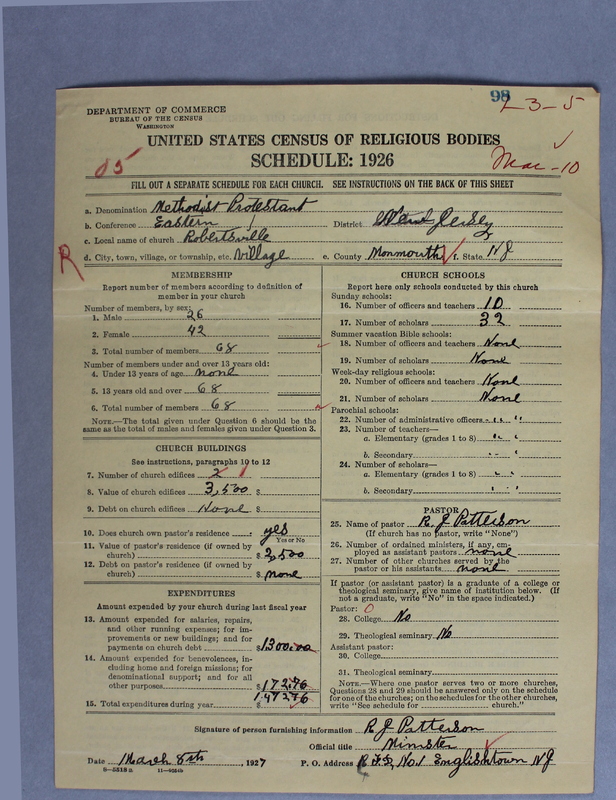 98
L-3-5
DEPARTMENT OF COMMERCE
BUREAU OF THE CENSUS
WASHINGTON
UNITED STATES CENSUS OF RELIGIOUS BODIES
SCHEDULE: 1926
Mar-10
FILL OUT A SEPARATE SCHEDULE FOR EACH CHURCH. SEE INSTRUCTIONS ON THE BACK OF THIS SHEET
a. Denomination Methodist Protestant
b. Conference Eastern District
c. Local name of church Robertsville
R d. City, town, village, or township, etc. Village e. County Monmouth f. State NJ
MEMBERSHIP
Report number of members according to definition of
member in your church
Number of members, by sex:
1. Male 26
2. Female 42
3. Total number of members 68
Number of members under and over 13 years old:
4. Under 13 years of age none
5. 13 years old and over 68
6. Total number of members 68
NOTE.—The total given under Question 6 should be the
same as the total of males and females given under Question 3.
CHURCH BUILDINGS
See instructions, paragraphs 10 to 12
7. Number of church edifices 2 1
8. Value of church edifices 3,500 $
9. Debt on church edifices None $
10. Does church own pastor's residence yes
Yes or No
11. Value of pastor's residence (if owned by
church) $ 2,500
12. Debt on pastor's residence (if owned by
church) $ none
EXPENDITURES
Amount expended by your church during last fiscal year
13. Amount expended for salaries, repairs,
and other running expenses; for im-
provements or new buildings; and for
payments on church debt $1300.00
14. Amount expended for benevolences, in-
cluding home and foreign missions; for
denominational support; and for all
other purposes $172.76
15. Total expenditures during year $1,472.76
CHURCH SCHOOLS
Report here only schools conducted by this church
Sunday schools:
16. Number of officers and teachers 10
17. Number of scholars 32
Summer vacation Bible schools:
18. Number of officers and teachers None
19. Number of scholars None
Week-day religious schools:
20. Number of officers and teachers None
21. Number of scholars None
Parochial schools:
22. Number of administrative officers " "
23. Number of teachers—
a. Elementary (grades 1 to 8) " "
b. Secondary " "
24. Number of scholars—
a. Elementary (grades 1 to 8) " "
b. Secondary " "
PASTOR
25. Name of pastor R. J. Patterson
(If church has no pastor, write "None")
26. Number of ordained ministers, if any, em-
ployed as assistant pastors none
27. Number of other churches served by the
pastor or his assistants none
If pastor (or assistant pastor) is a graduate of a college or
theological seminary, give name of institution below. (If
not a graduate, write "No" in the space indicated.)
Pastor: 0
28. College No
29. Theological seminary No
Assistant pastor:
30. College
31. Theological seminary
NOTE.—Where one pastor serves two or more churches,
Questions 28 and 29 should be answered only on the schedule
for one of the churches; on the schedules for the other churches,
write "See schedule for church."
Signature of person furnishing information R J Patterson
Official title Minister
Date March 8th, 1927 P. O. Address R.F.D. No.1 Englishtown NJ
8—5518a